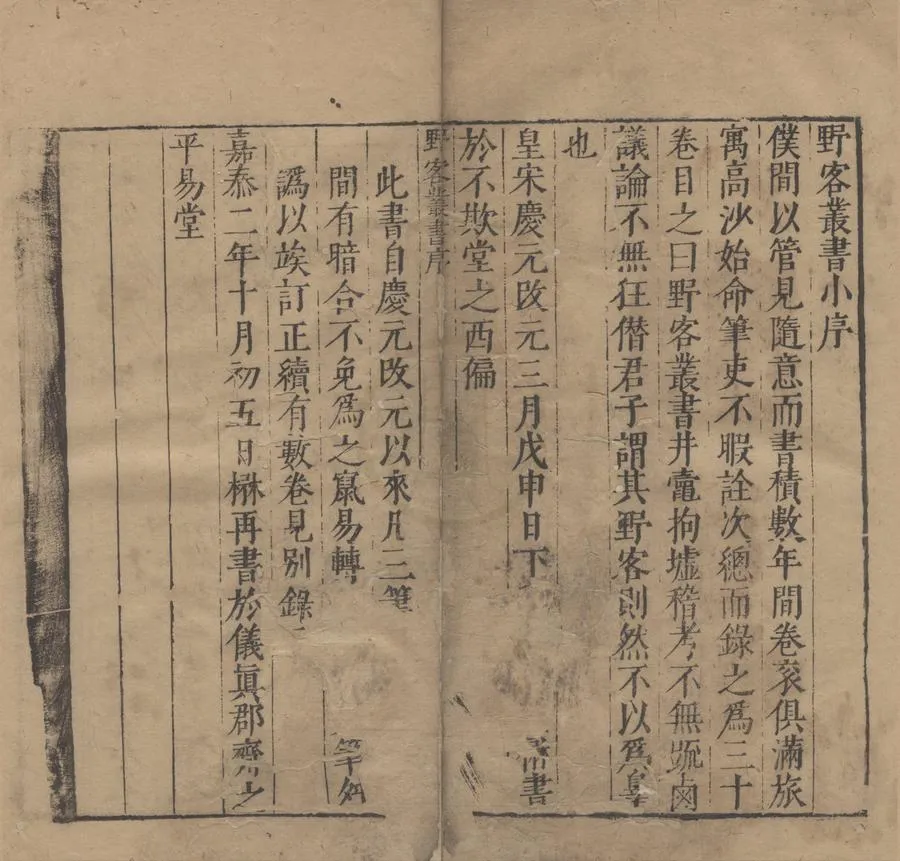 野客叢書小序
僕間以管見隨意而書積數年間卷袠俱滿旅
寓高沙始命筆吏不暇詮次總而錄之爲三十
卷目之曰野客叢書井鼃拘墟稽考不無疏鹵
議論不無狂僣君子謂其野客則然不以爲辠
也
皇宋慶元改元三月戊申日下 書
於不欺堂之西偏
野客叢書序
此書自慶元改元以來凡三筆
間有暗合不免爲之竄易轉
譌以竢訂正續有數卷見別錄
嘉泰二年十月初五日楙再書於儀眞郡齋之
平易堂